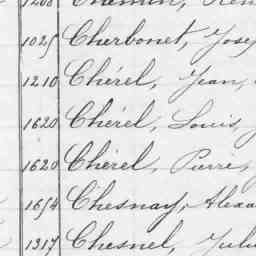 1025 Cherbonet, Jose
1210 Chérel, Jean,
1620 Chérel, Louis,
1620 Chérel, Pierre,
1654 Chesnay, Alexa
1317 Chesnel, Jul